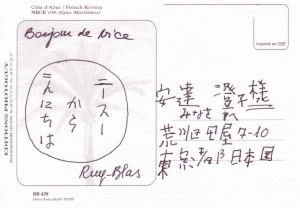 Côte d'Azur / French Riviera
NICE (06-Alpes Maritimes)
Bonjour de Nice
ニースー
から
こんにちは
Ruy-Blas
EDITIONS PHOTOGUY
BB 439
Imprimé en CEE
安達 澄子様
みなされ
荒川区町屋 7-10
東京 日本国